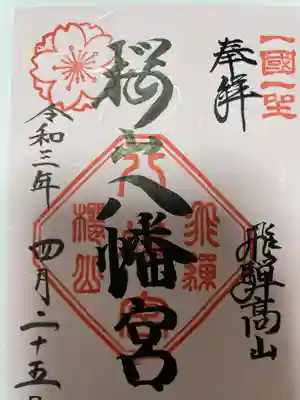 一國一社
奉拝
飛騨高山
桜山八幡宮
飛騨
八幡宮
桜山
令和三年 四月二十五日